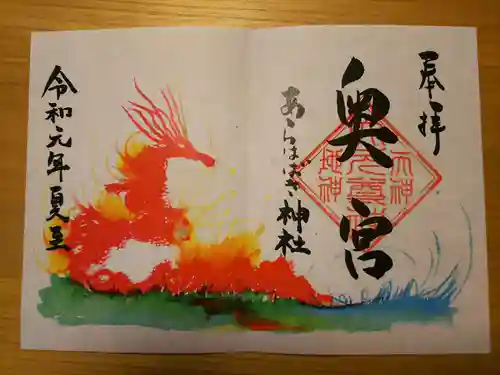 奉拝
奥宮
天神
地神
あらはばき神社
令和元年夏至